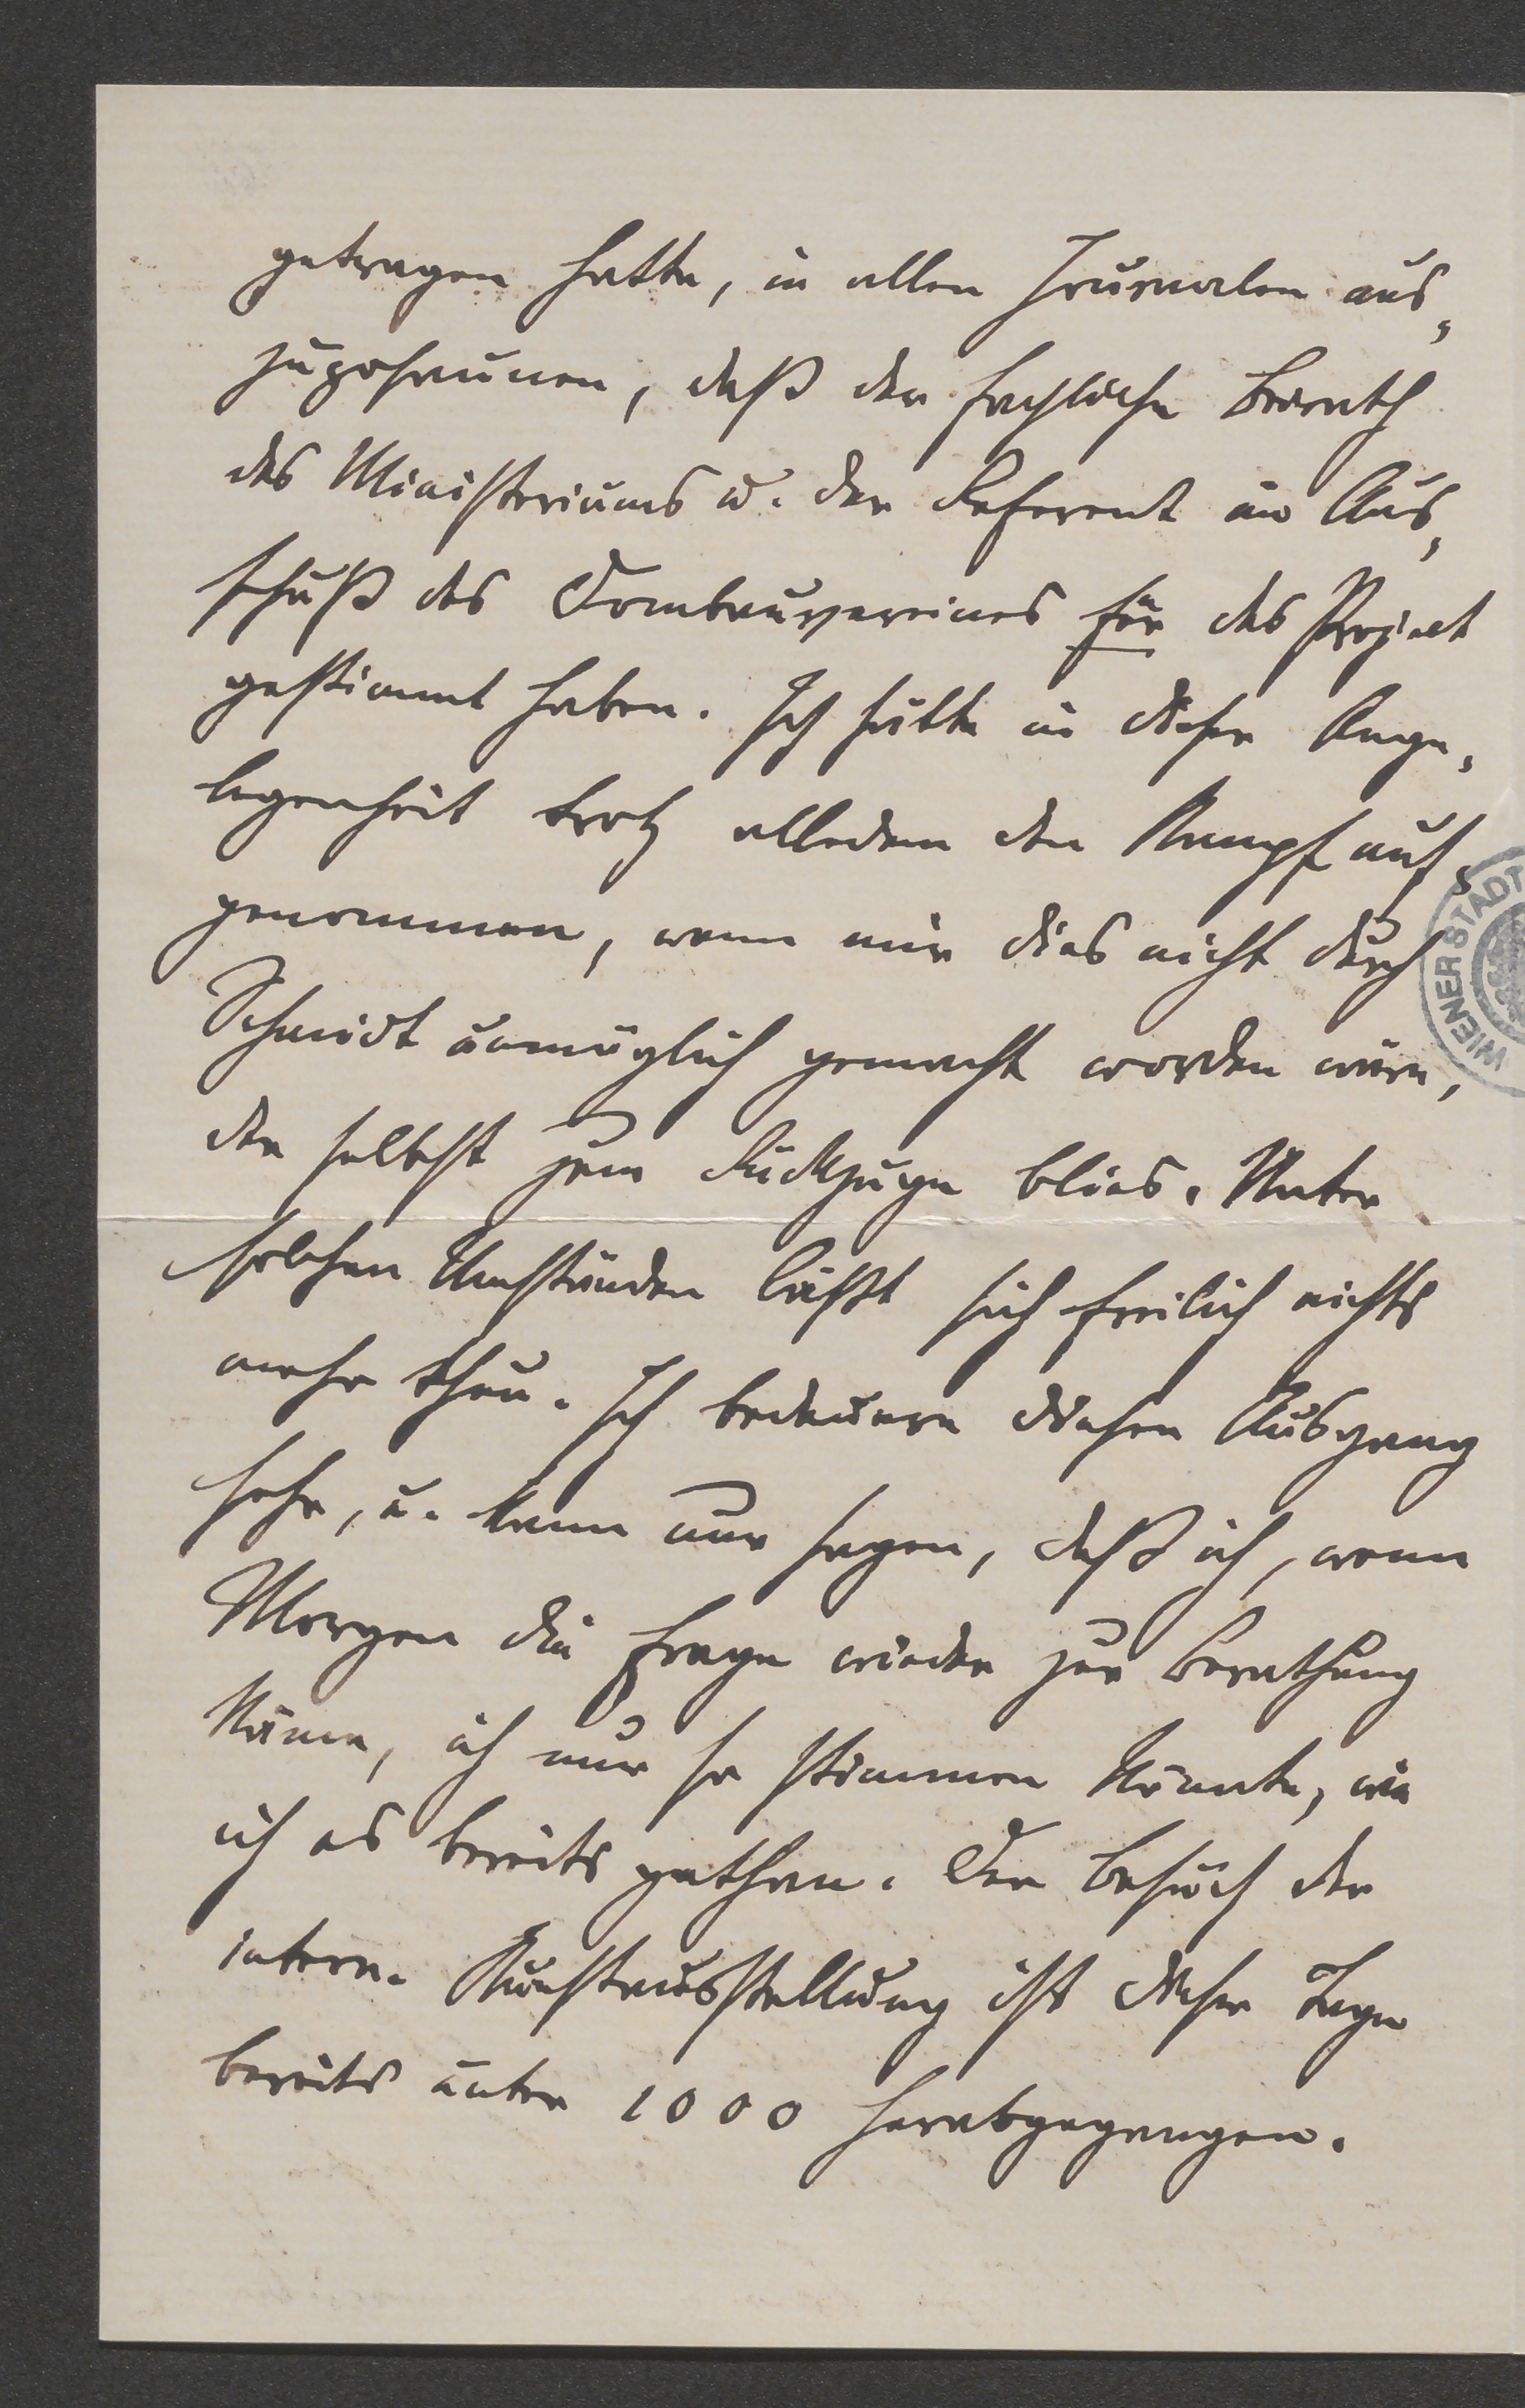 getragen hatte, in allen Journalen aus„
zuposaunen, daß der fachliche Beirath
des Ministeriums u. der Referent im Aus„
schuß des Dombauvereines für das Project
gestimmt haben. Ich hätte in dieser Ange„
legenheit trotz alledem den Kampf auf„
genommen, wenn mir dies nicht durch
Schmidt unmöglich gemacht worden wäre,
der selbst zum Rückzuge blies. Unter
solchen Umständen läßt sich freilich nichts
mehr thun. Ich bedauere diesen Ausgang
sehr, u. kann nur sagen, daß ich, wenn
Morgen die Frage wieder zur Berathung
käme, ich nur so stimmen könnte, wie
ich es bereits gethan. Der Besuch der
intern. Kunstausstellung ist dieser Tage
bereits unter 1000 herabgegangen.
WIENER STADT